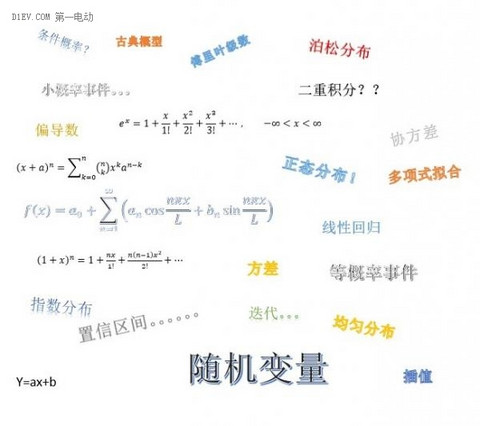 D1EV.COM 第一电动
条件概率？
古典概型
傅里叶级数
泊松分布
小概率事件。。。
二重积分？？
偏导数
e^x = 1 + x/1! + x²/2! + x³/3! + ⋯ ,    −∞ < x < ∞
协方差
(x + a)^n = ∑_{k=0}^{n} (n k) x^k a^{n−k}
正态分布！
多项式拟合
f(x) = a₀ + ∑_{n=1}^{∞} (aₙ cos nπx/L + bₙ sin nπx/L)
线性回归
(1 + x)^n = 1 + nx/1! + n(n−1)x²/2! + ⋯
方差
等概率事件
指数分布
置信区间。。。。。。
迭代。。。
均匀分布
随机变量
Y=ax+b
插值